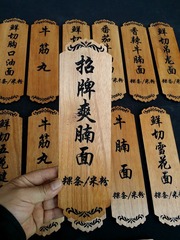 鲜切胸口油面
牛筋丸
鲜切
番茄
香辣牛腩面
鲜切吊龙面
招牌爽腩面
粿条/米粉
鲜切五
牛
牛腩面
粿条/米粉
鲜切雪花面
粿条/米粉